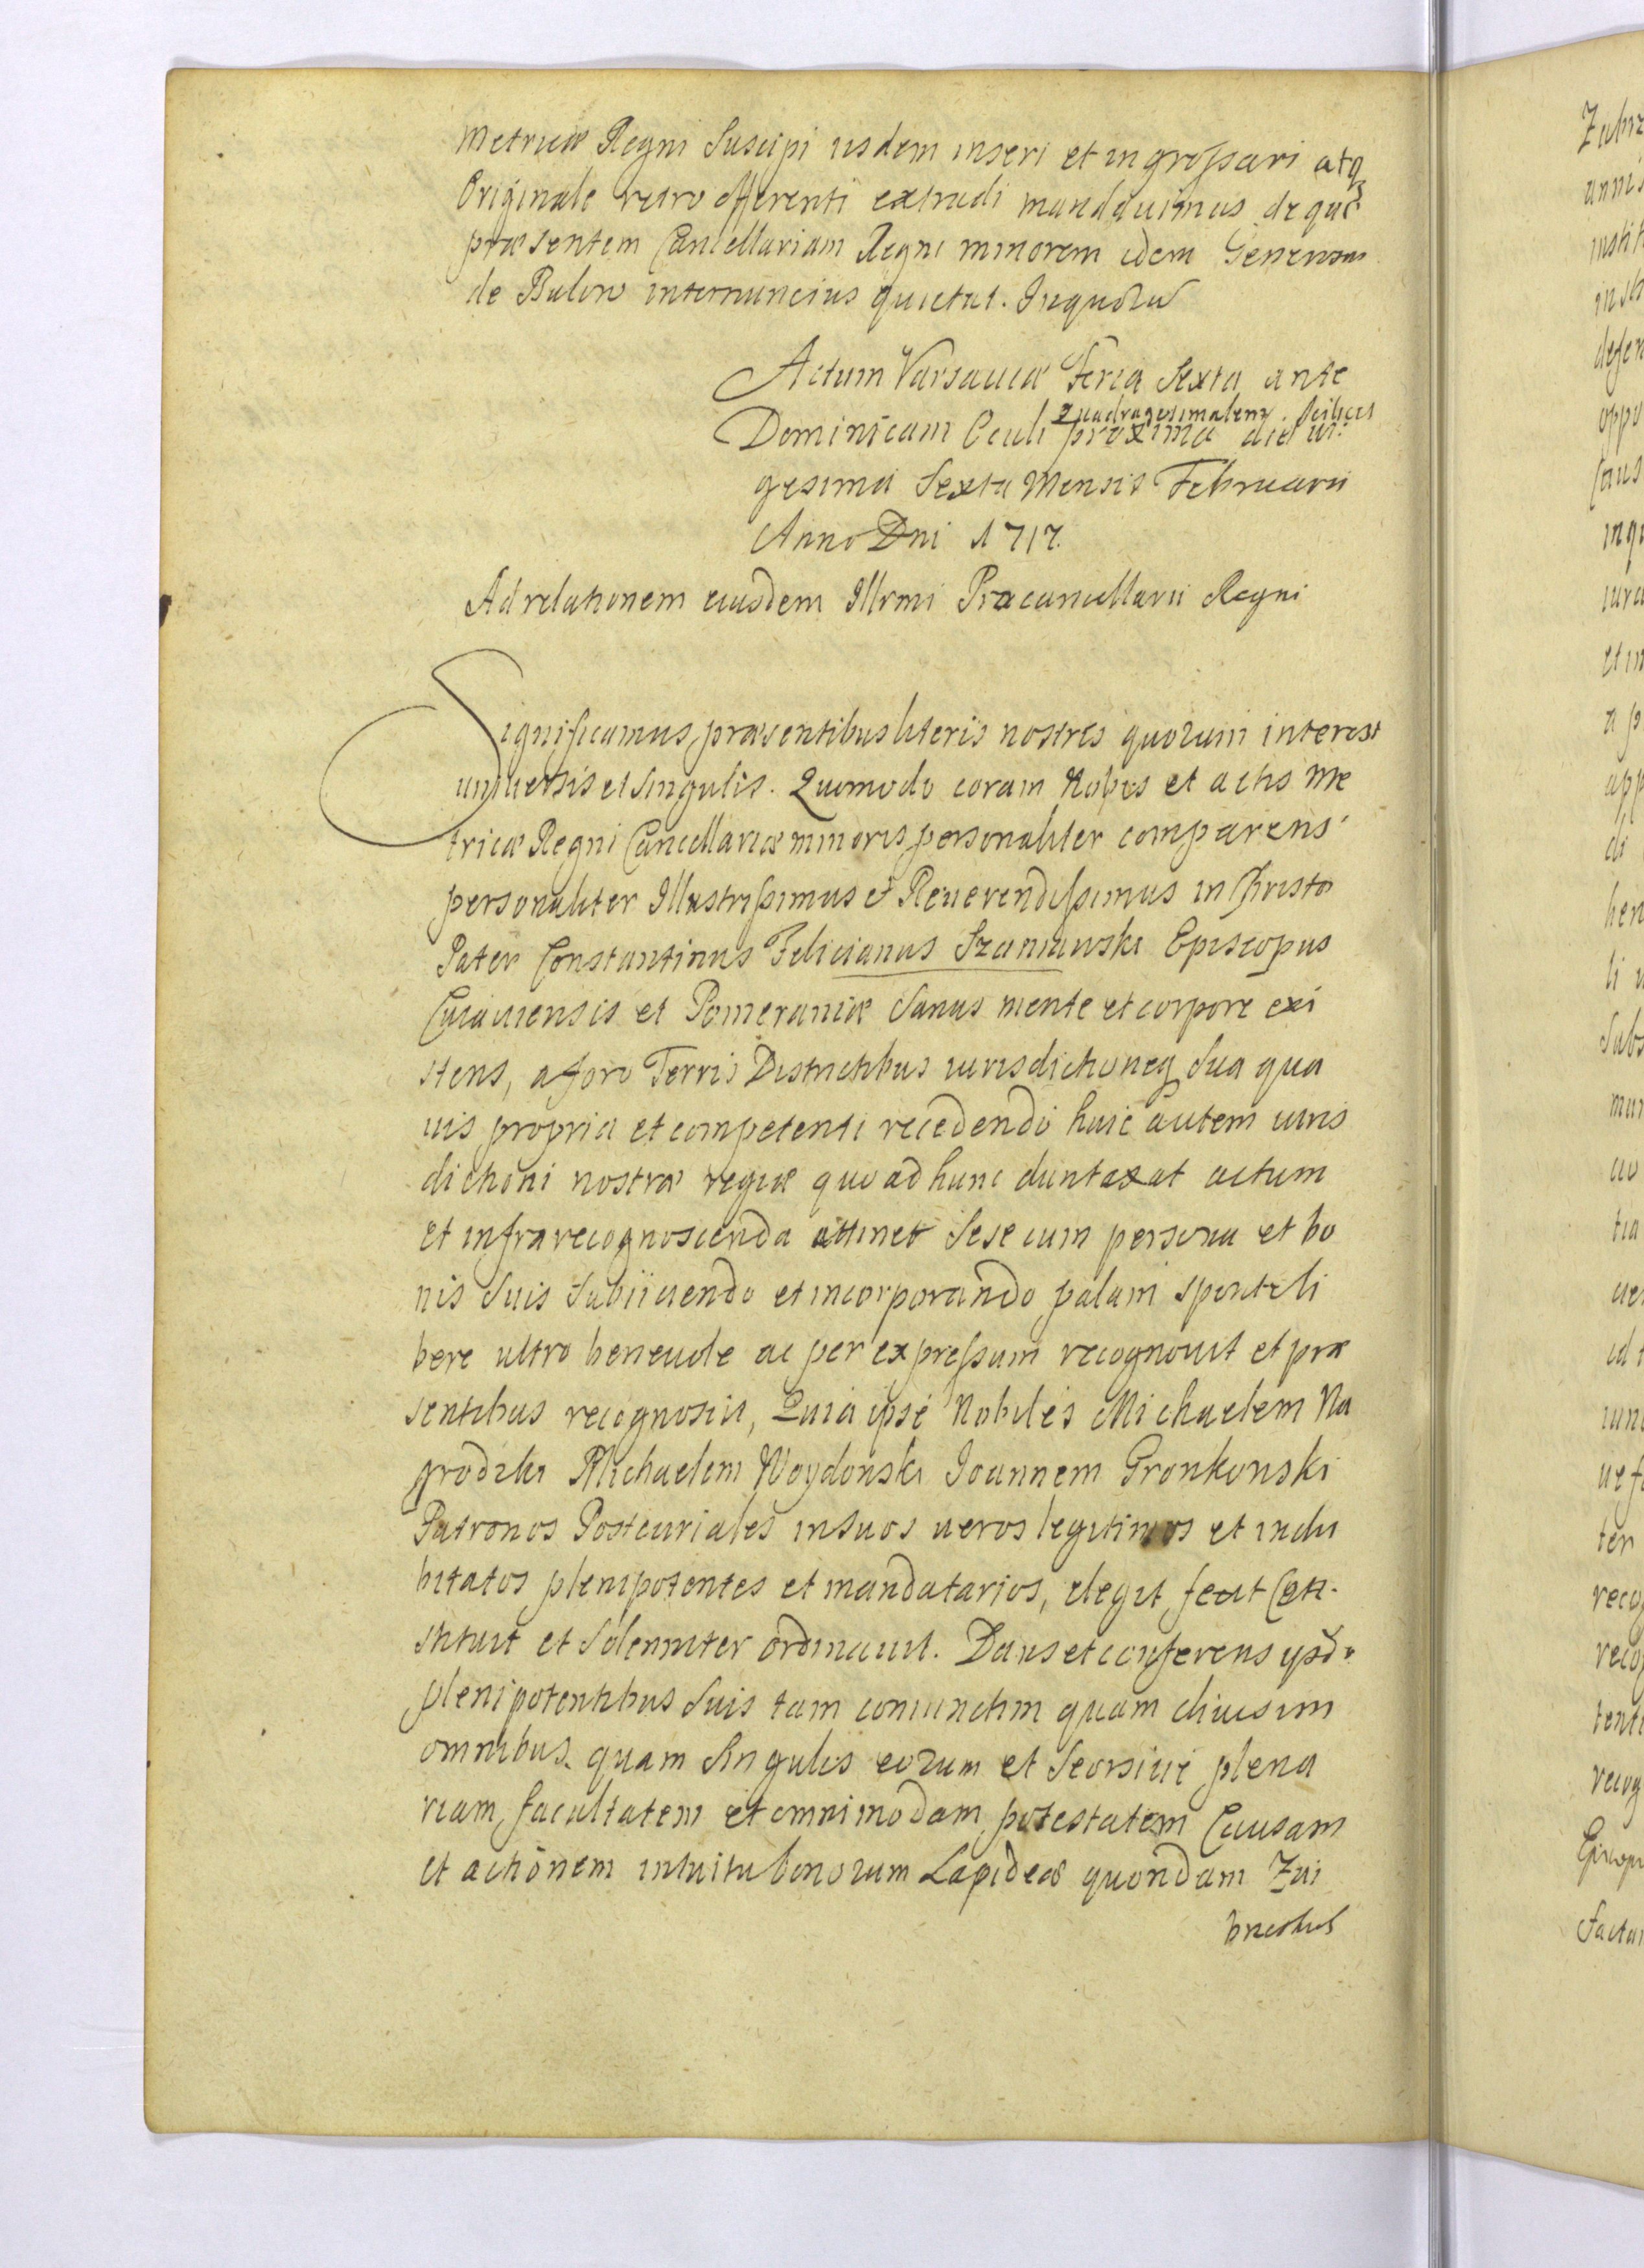 Metricæ Regni Suscipi iisdem inseri et ingrossari atq
Originale retro offerenti extradi mandavimus de quo
præsentem Cancellariam Regni minorem idem Generosus
de Bulow internuncius quietat. In quorũ
Actum Varsaviæ Feria Sexta ante
Dominicam Oculi quadragesimalem proxima scilicet die vi-
gesima Sexta Mensis Februarii
Anno Dni 1717.
Ad relationem eiusdem Illrmi Procancellarii Regni
Significamus præsentibus literis nostris quorum interest
universis et Singulis. Quomodo coram Nobis et actis Me
tricæ Regni Cancellariæ minoris personaliter comparens
personaliter Illustrissimus et Reverendissimus in Christo
Pater Constantinus Felicianus Szaniawski Episcopus
Cuiaviensis et Pomeraniæ Sanus mente et corpore exi
stens, a foro Terris Districtibus iurisdictioneq Sua qua
vis propria et competenti recedendo huic autem iuris
dictioni nostræ regiæ quo ad hunc duntaxat actum
et infra recognoscenda attinet Sese cum persona et bo
nis Suis Subiiciendo et incorporando palam sponte li
bere ultro benevole ac per expressum recognovit et præ
sentibus recognoscit, Quia ipse Nobiles Michaelem Na
grodzki Michaelem Woydonski Joannem Gronkonski
Patronos Postcuriales in Suos veros legitimos et indu
bitatos plenipotentes et mandatarios, elegit fecit Con-
stituit et Solenniter ordinavit. Dans et conferens ypsd.
plenipotentibus Suis tam coniunctim quam divisim
omnibus quam Singulis eorum et Seorsive plena
riam facultatem et omnimodam potestatem Causam
et actionem intuitu bonorum Lapideæ quondam Zui